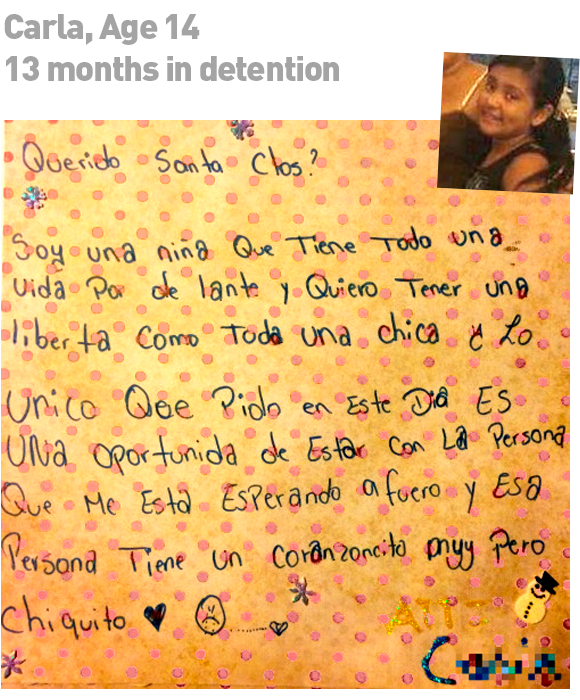 Carla, Age 14
13 months in detention
Querido Santa Clos?
Soy una niña Que Tiene Todo una
vida Por de lante y Quiero Tener una
liberta Como Toda una chica y Lo
Unico Que Pido en Este Dia Es
UNa oportunida de Estar Con La Persona
Que Me Esta Esperando afuero y Esa
Persona Tiene un Coranzoncito muy Pero
Chiquito
ATTJ